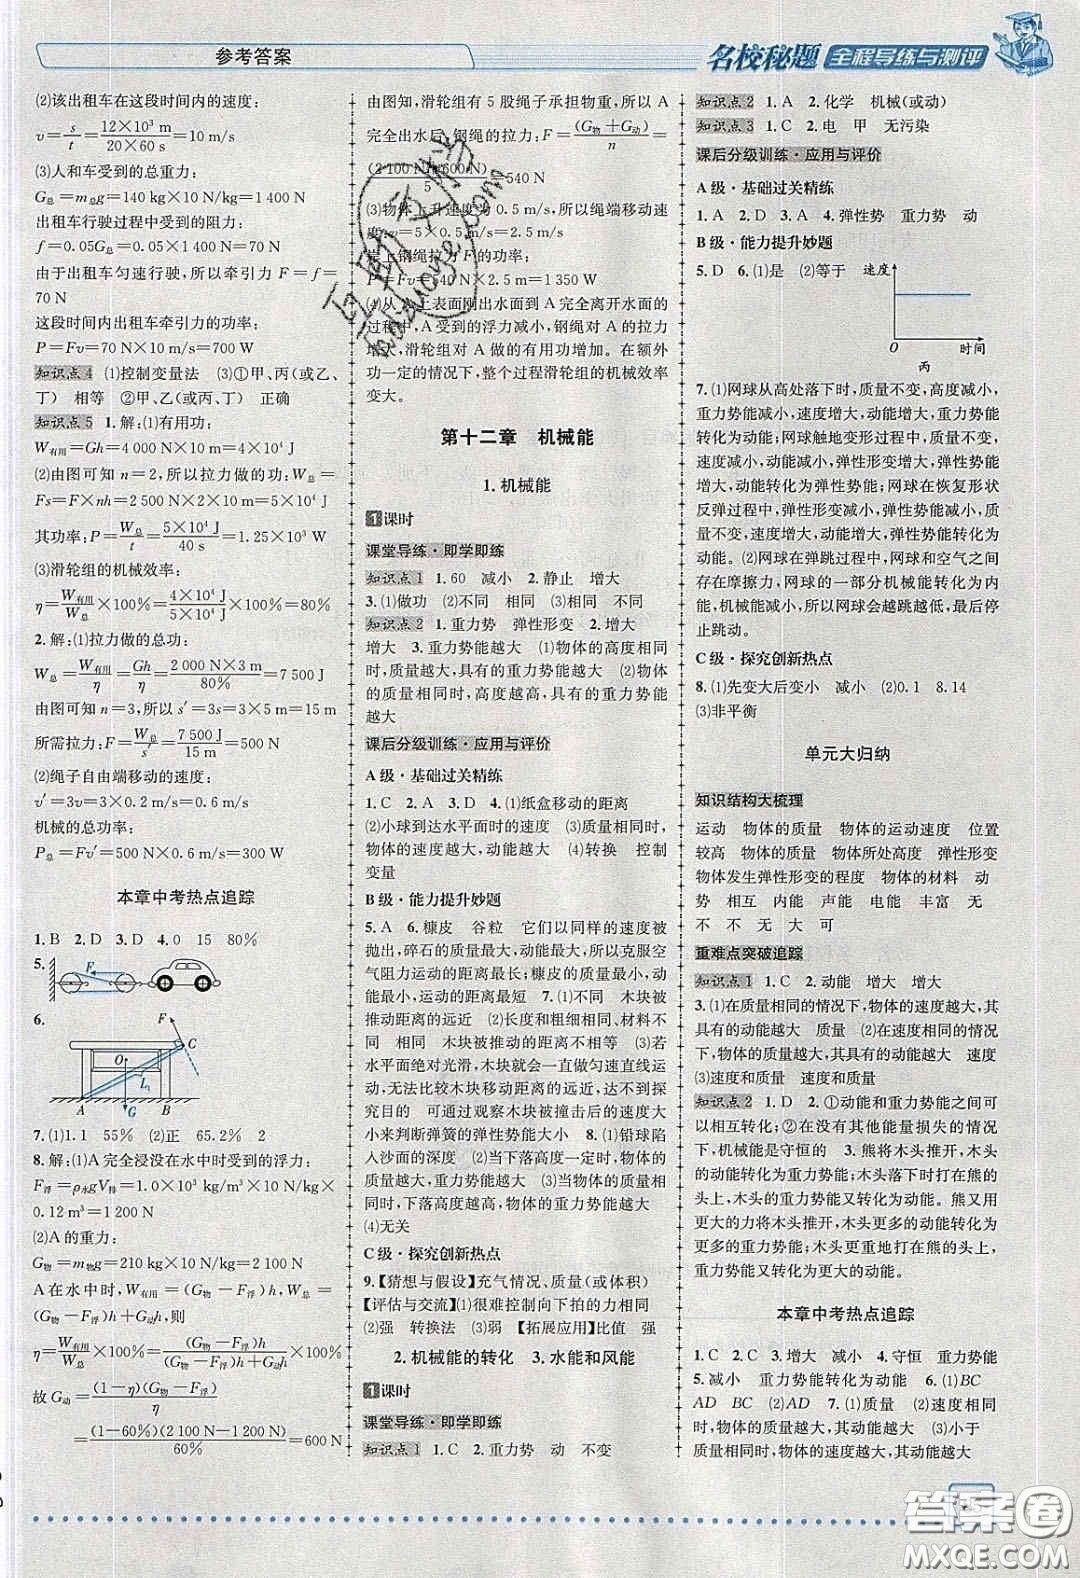 参考答案
名校秘题 全程导练与测评
(2)该出租车在这段时间内的速度：
v=s/t=12×10³ m/20×60 s=10 m/s
(3)人和车受到的总重力：
G总=m总g=140 kg×10 N/kg=1 400 N
出租车行驶过程中受到的阻力：
f=0.05G总=0.05×1 400 N=70 N
由于出租车匀速行驶，所以牵引力 F=f=
70 N
这段时间内出租车牵引力的功率：
P=Fv=70 N×10 m/s=700 W
知识点4 (1)控制变量法 (3)①甲、丙(或乙、
丁) 相等 ②甲、乙(或丙、丁) 正确
知识点5 1.解：(1)有用功：
W有用=Gh=4 000 N×10 m=4×10⁴ J
(2)由图可知 n=2，所以拉力做的功：W总=
Fs=F×nh=2 500 N×2×10 m=5×10⁴ J
其功率：P=W总/t=5×10⁴ J/40 s=1.25×10³ W
(3)滑轮组的机械效率：
η=W有用/W总×100%=4×10⁴ J/5×10⁴ J×100%=80%
2.解：(1)拉力做的总功：
W总=W有用/η=Gh/η=2 000 N×3 m/80%=7 500 J
由图可知 n=3，所以 s′=3s=3×5 m=15 m
所需拉力：F=W总/s′=7 500 J/15 m=500 N
(2)绳子自由端移动的速度：
v′=3v=3×0.2 m/s=0.6 m/s
机械的总功率：
P总=Fv′=500 N×0.6 m/s=300 W
本章中考热点追踪
1.B 2.D 3.D 4.0 15 80%
5.
F
6.
F
C
O
L₁
A G B
7.(1)1.1 55% (2)正 65.2% 2
8.解：(1)A完全浸没在水中时受到的浮力：
F浮=ρ水gV排=1.0×10³ kg/m³×10 N/kg×
0.12 m³=1 200 N
(2)A的重力：
G物=m物g=210 kg×10 N/kg=2 100 N
A在水中时，W有用=(G物−F浮)h，W总=
(G物−F浮)h+G动h，则
η=W有用/W总×100%=(G物−F浮)h/(G物−F浮)h+G动h×100%
故 G动=(1−η)(G物−F浮)/η
=(1−60%)(2 100 N−1 200 N)/60%=600 N
由图知，滑轮组有5股绳子承担物重，所以A
完全出水后，钢绳的拉力：F=(G物+G动)/n
=(2 100 N+600 N)/5=540 N
(3)物体上升速度为0.5 m/s，所以绳端移动
速度：v=5×0.5 m/s=2.5 m/s
岸上钢绳拉力F的功率：
P=Fv=540 N×2.5 m/s=1 350 W
(4)从A上表面刚出水面到A完全离开水面的
过程中，A受到的浮力减小，钢绳对A的拉力
增大，滑轮组对A做的有用功增加。在额外
功一定的情况下，整个过程滑轮组的机械效率
变大。
第十二章 机械能
1.机械能
1课时
课堂导练·即学即练
知识点1 1.60 减小 2.静止 增大
3.(1)做功 (2)不同 相同 (3)相同 不同
知识点2 1.重力势 弹性形变 2.增大
增大 3.重力势能越大 (1)物体的高度相同
时，质量越大，具有的重力势能越大 (2)物体
的质量相同时，高度越高，具有的重力势能
越大
课后分级训练·应用与评价
A级·基础过关精练
1.C 2.A 3.D 4.(1)纸盒移动的距离
(2)小球到达水平面时的速度 (3)质量相同
时，速度越大，动能越大 (4)转换 控制
变量
B级·能力提升妙题
5.A 6.糠皮 谷粒 它们以同样的速度被
抛出，碎石的质量最大，动能最大，所以克服空
气阻力运动的距离最长；糠皮的质量最小，动
能最小，运动的距离最短 7.(1)不同 木块被
推动距离的远近 (2)长度和粗细相同、材料不
同 相同 木块被推动的距离不相等 (3)若
水平面绝对光滑，木块就会一直做匀速直线运
动，无法比较木块移动距离的远近，达不到探
究目的 可通过观察木块被撞击后的速度大
小来判断弹簧的弹性势能大小 8.(1)铅球陷
入沙面的深度 (2)下落高度一定时，铅球的
质量越大，重力势能越大 (3)当物体质量相同
时，下落高度越大，物体的重力势能越大
(4)无关
C级·探究创新热点
9.【猜想与假设】充气情况、质量(或体积)
【评估与交流】(1)很难控制向下拍的力相同
(2)强 转换法 (3)弱 【拓展应用】比值 强
2.机械能的转化 3.水能和风能
1课时
课堂导练·即学即练
知识点1 1.C 2.重力势 动 不变
知识点2 1.A 2.化学 机械(或动)
知识点3 1.C 2.电 甲 无污染
课后分级训练·应用与评价
A级·基础过关精练
1.A 2.D 3.A 4.弹性势 重力势 动
B级·能力提升妙题
5.D 6.(1)是 (2)等于
速度
O 时间
丙
7.(1)网球从高处落下时，质量不变，高度减小，
重力势能减小，速度增大，动能增大，重力势能
转化为动能；网球触地弯形过程中，质量不变，
速度减小，动能减小，弹性形变增大，弹性势能
增大，动能转化为弹性势能；网球在恢复形状
反弹过程中，质量不变，弹性形变减小，弹性势
能减小，速度增大，动能增大，弹性势能转化为
动能。(2)网球在弹跳过程中，网球和空气之间
存在摩擦力，网球的一部分机械能转化为内
能，机械能减小，所以网球会越跳越低，最后停
止跳动。
C级·探究创新热点
8.(1)先变大后变小 减小 (2)0.1 8.14
(3)非平衡
单元大归纳
知识结构大梳理
运动 物体的质量 物体的运动速度 位置
较高 物体的质量 物体所处高度 弹性形变
物体发生弹性形变的程度 物体的材料 动
势 相互 内能 声能 电能 丰富 无
不 不 无 大 可
重难点突破追踪
知识点1 1.C 2.动能 增大 增大
3.(1)在质量相同的情况下，物体的速度越大，其
具有的动能越大 质量 (2)在速度相同的情况
下，物体的质量越大，其具有的动能越大 速度
(3)速度和质量 速度和质量
知识点2 1.D 2.①动能和重力势能之间可
以相互转化；②在没有其他能量损失的情况
下，机械能是守恒的 3.熊将木头推开，木头
的动能转化为重力势能；木头落下时打在熊的
头上，木头的重力势能又转化为动能。熊又用
更大的力将木头推开，木头更大的动能转化为
更多的重力势能；木头更重地打在熊的头上，
重力势能又转化为更大的动能。
本章中考热点追踪
1.C 2.C 3.增大 减小 4.守恒 重力势能
5.减小 重力势能转化为动能 6.(1)BC
AD BC (2)AD 7.(1)质量 (2)在速度相
同时，物体的质量越大，动能越大 (3)小于
质量相同时，物体的速度越大，动能越大
答案圈
MXQE.COM